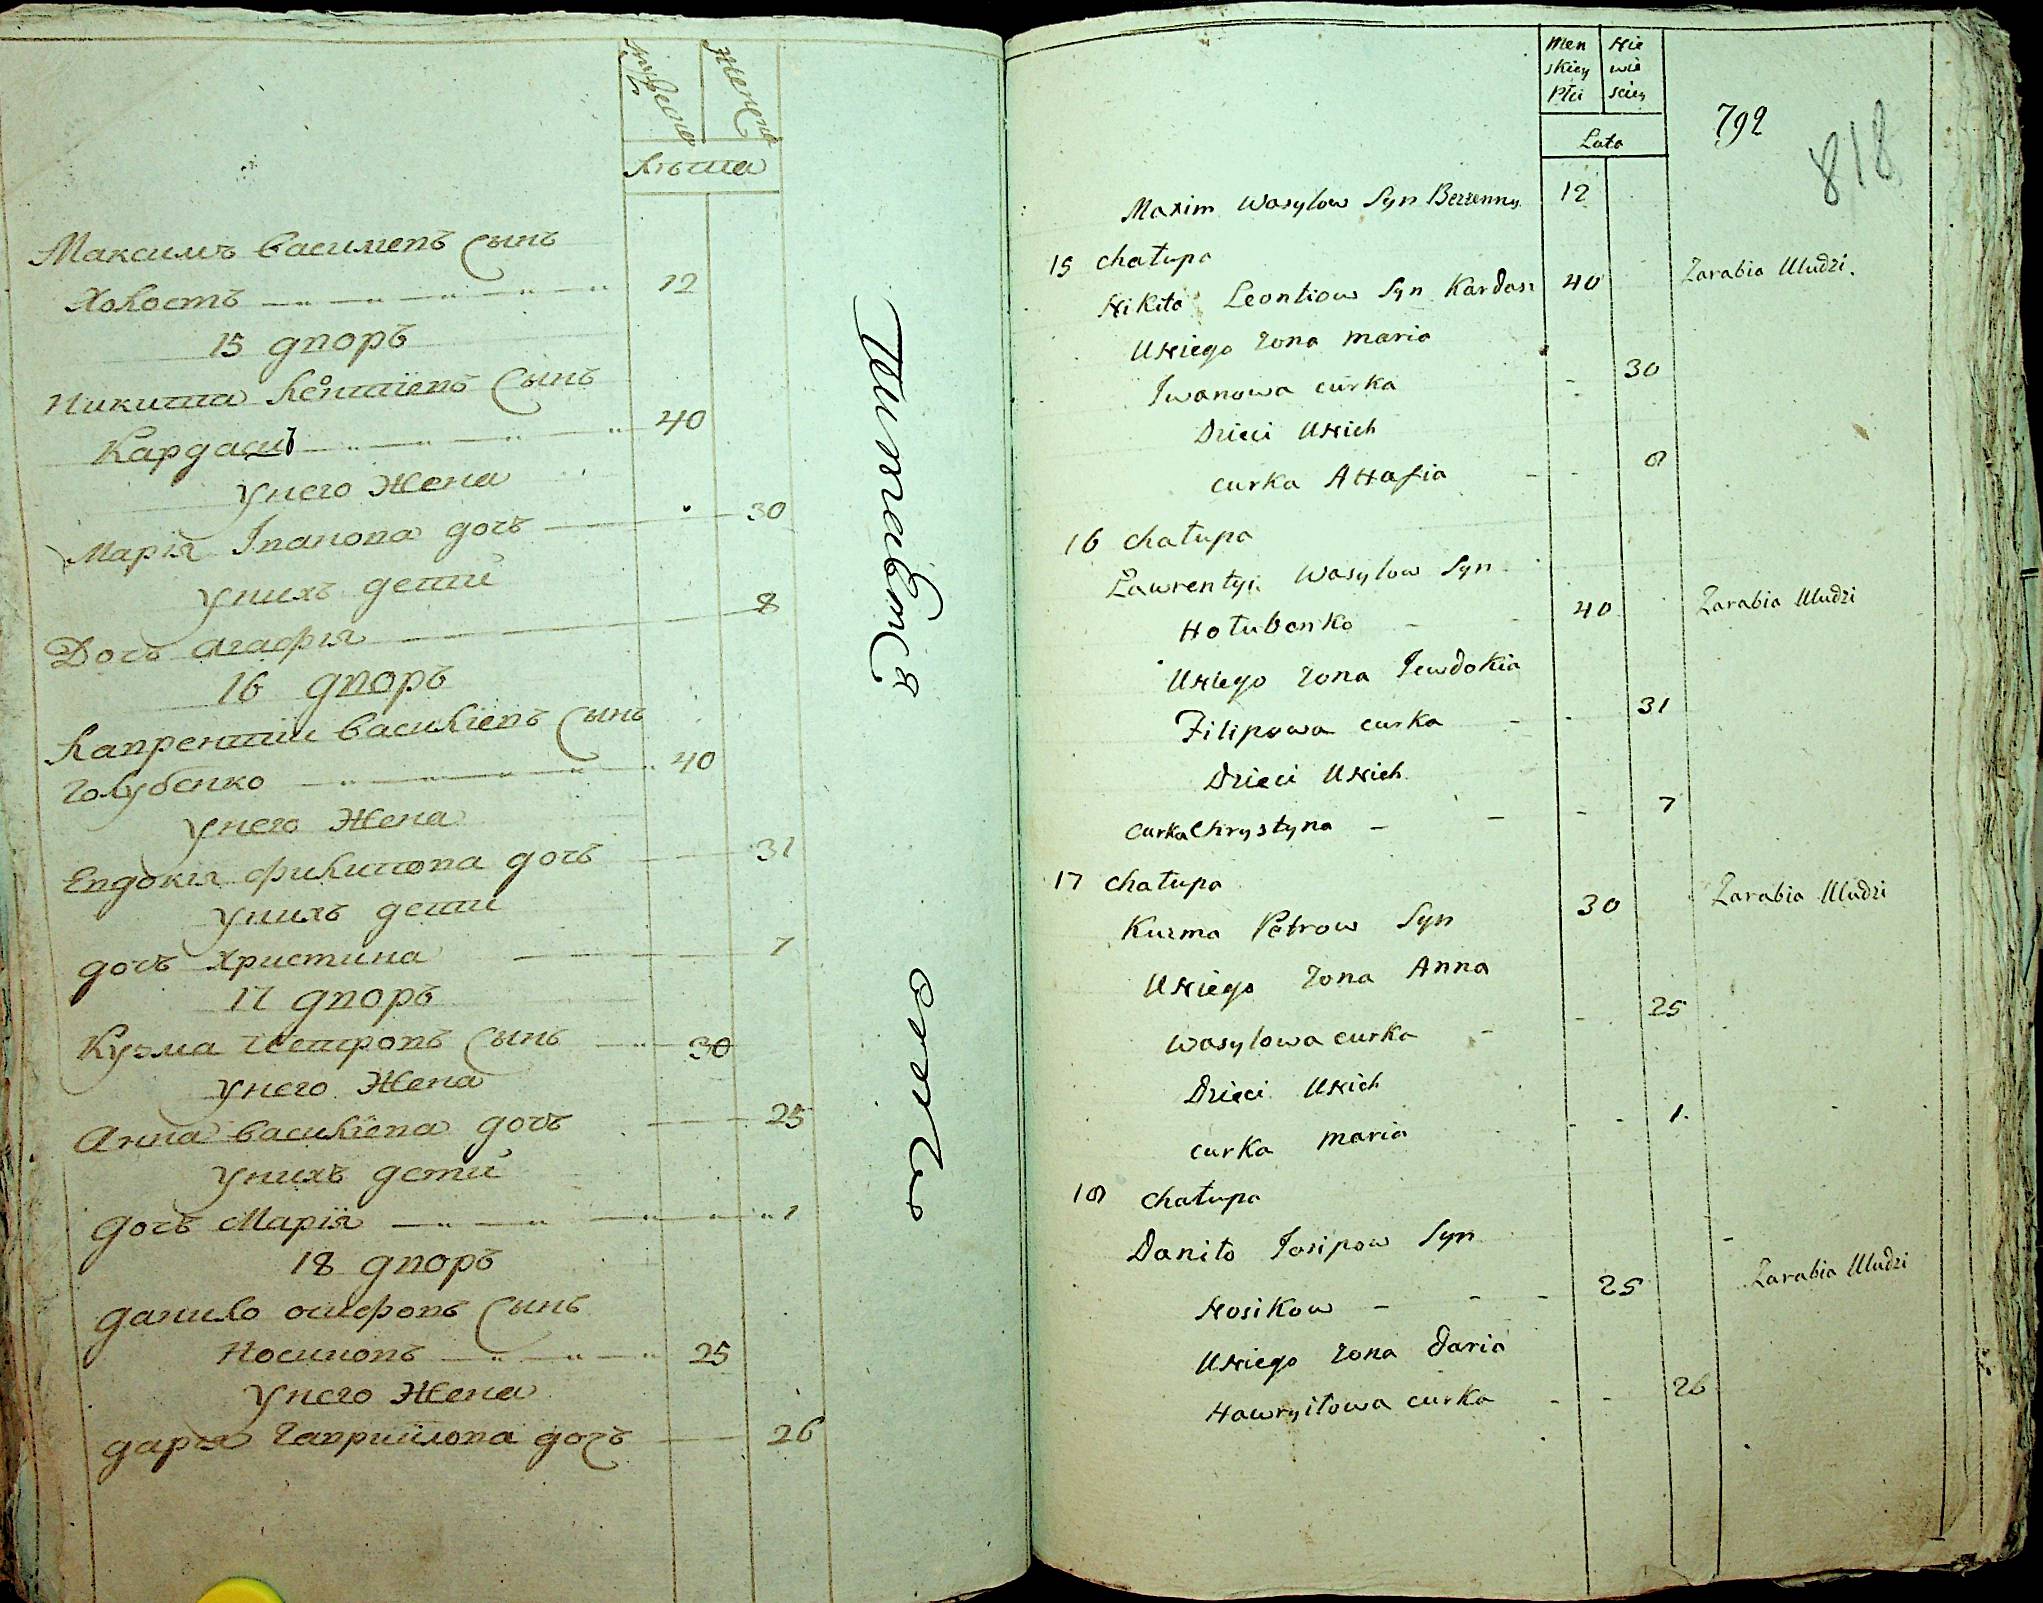 мужеска
женска
лѣта
Максимъ васильевъ сынъ
Холостъ 12
15 дворъ
Никита леѡнтиевъ сынъ
Кардашъ 40
У него Жена
Мария Iванова дочъ 30
У нихъ дети
Дочъ агафия 8
16 дворъ
лаврентии василиевъ сынъ
Голубенко 40
У него Жена
Евдокия филипова дочъ 31
У нихъ дети
дочъ христина 7
17 дворъ
Кузма петровъ сынъ 30
У него Жена
Анна василиева дочъ 25
У нихъ дети
дочъ Мария 1
18 дворъ
данило осиповъ сынъ
Носиковъ 25
У него Жена
дария гавриилова дочъ 26
Men Nie
skiey wie
Płci sciey
Lata
792
818
Maxim Wasylow Syn Bezzenny 12
15 chałupa
Nikita Leontiow Syn Kardasz 40 Zarabia Uludzi.
Uniego Zona maria
Iwanowa curka 30
Dzieci Unich
curka Ahafia 8
16 chałupa
Ławrentyi Wasylow Syn
Hołubenko 40 Zarabia Uludzi
Uniego Zona Iewdokia
Filipowa curka 31
Dzieci Unich
curka Chrystyna 7
17 chałupa
Kuzma Petrow Syn 30 Zarabia Uludzi
Uniego Zona Anna
Wasylowa curka 25
Dzieci Unich
curka maria 1.
18 chałupa
Daniło Iosipow Syn
Nosikow 25 Zarabia Uludzi
Uniego Zona daria
Hawryiłowa curka 26